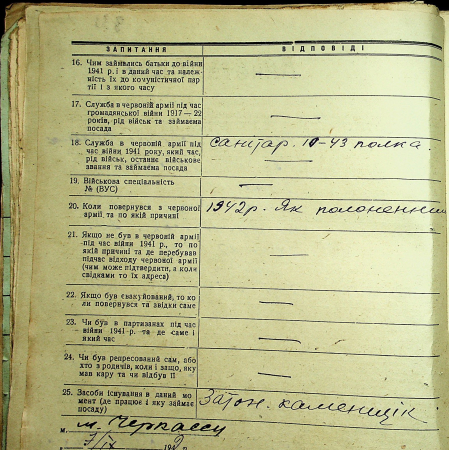 ЗАПИТАННЯ
ВІДПОВІДІ
16. Чим займались батьки до війни
1941 р. і в даний час та належ-
ність їх до комуністичної пар
тії і з якого часу
17. Служба в червоній армії під час
громадянської війни 1917 — 22
років, рід військ та займаєма
посада
18. Служба в червоній армії під
час війни 1941 року, який час,
рід військ, останнє військове
звання та займаєма посада
санітар. 10-43 полка.
19. Військова спеціальність
№ (ВУС)
20. Коли повернувся з червоної
армії та по якій причині
1942р. Як полоненний
21. Якщо не був в червоній армії
під час війни 1941 р., то по
якій причині та де перебував
підчас відходу червоної армії
(чим може підтвердити, а коли
свідками то їх адреса)
22. Якщо був евакуйований, то ко
ли повернувся та звідки саме
23. Чи був в партизанах під час
війни 1941 р. та де саме і
який час
24. Чи був репресований сам, або
хто з родичів, коли і защо, яку
мав кару та чи відбув її
25. Засоби існування в даний мо
мент (де працює і яку займає
посаду)
Затон. каменщік
м. Черкассы
194